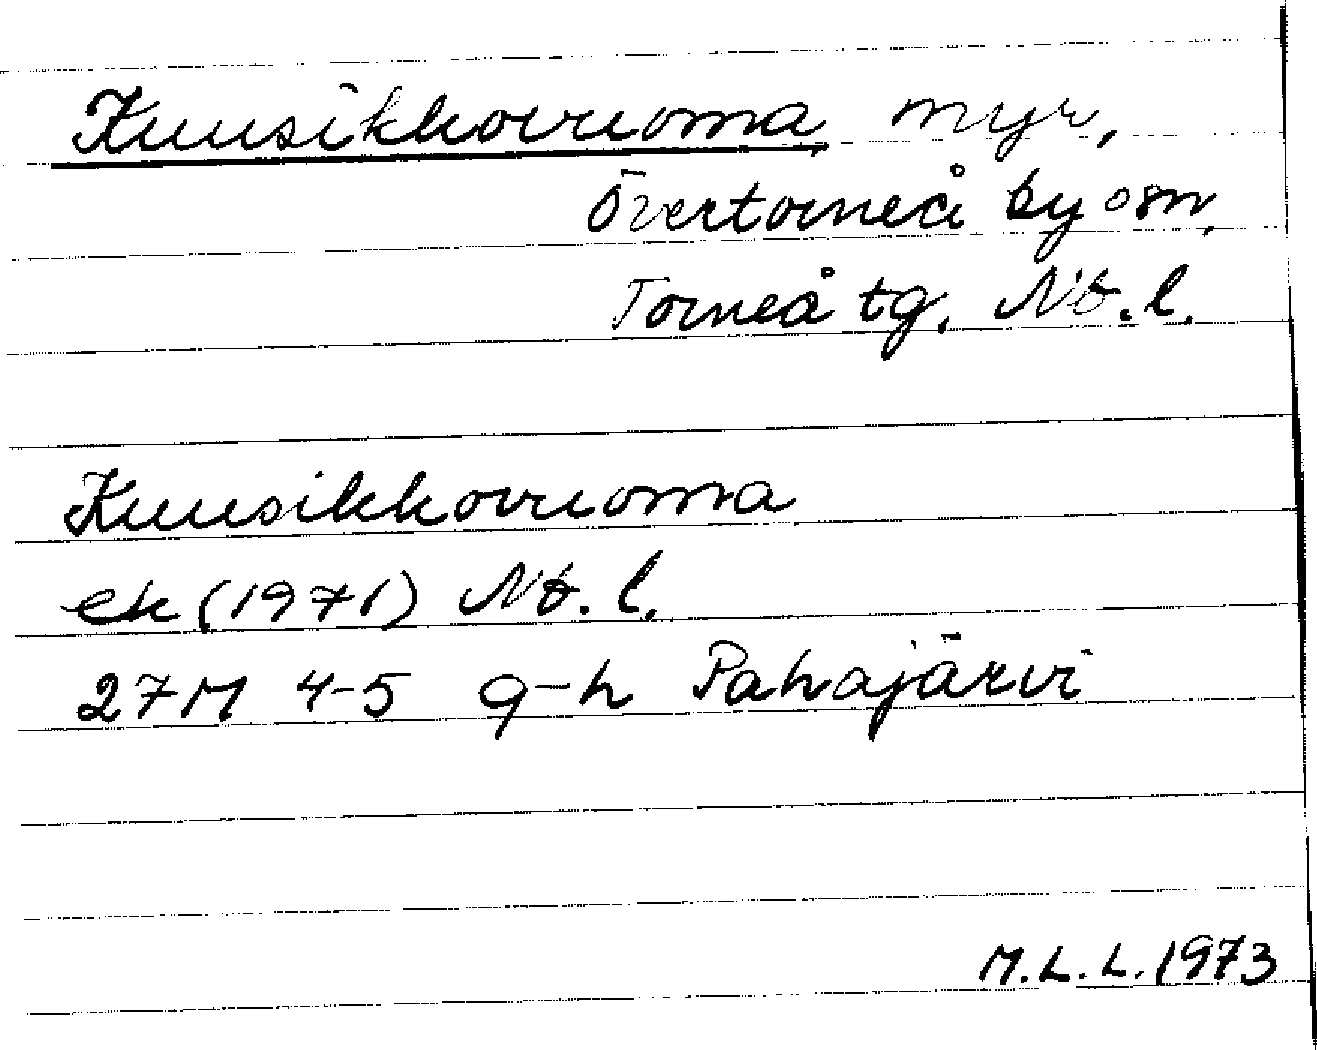 Kuusikkovuoma myr,
Övertorneå by osn,
Torneå tg. Nb.l.
Kuusikkovuoma
ek (1971) Nb.l.
27M 4-5 g-h Pahajärvi
M.L.L. 1973